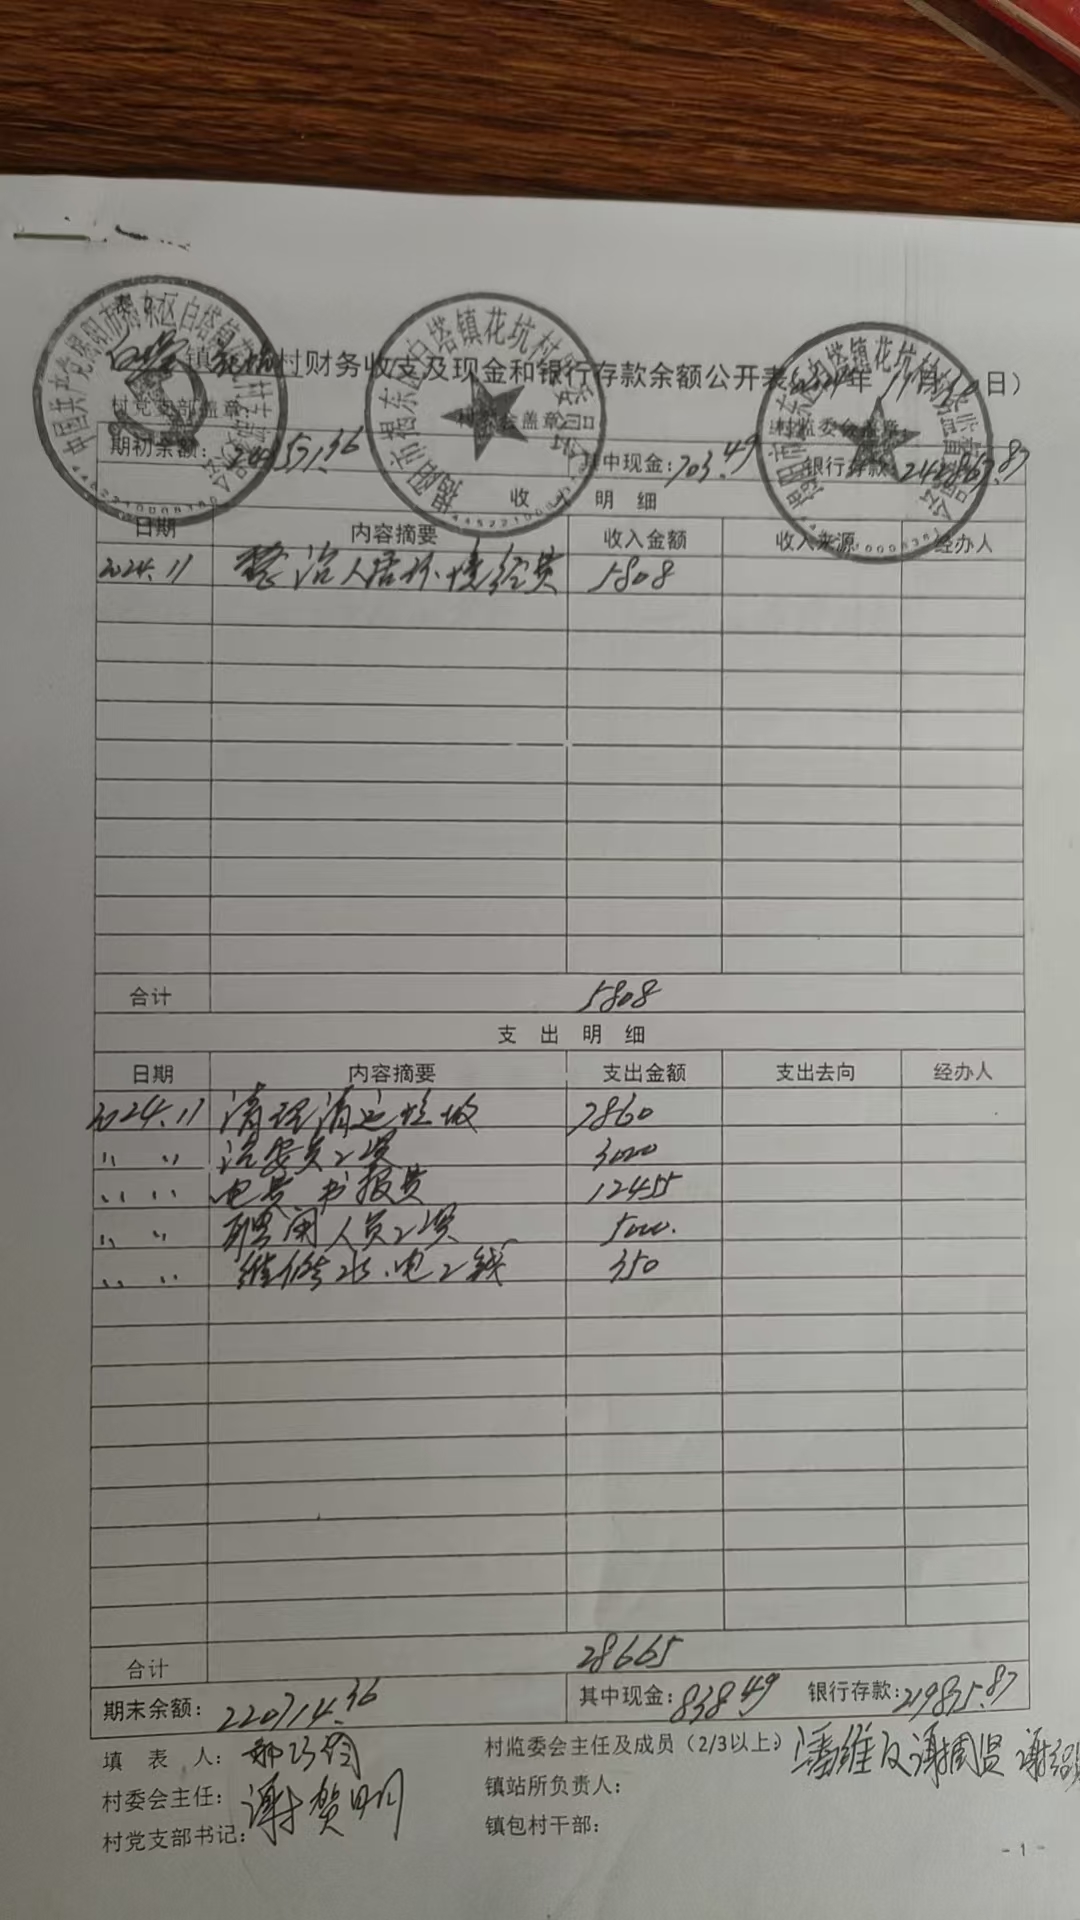 白塔镇花坑村财务收支及现金和银行存款余额公开表(2024年11月30日)
村党支部盖章: 村委会盖章: 村监委会盖章:
期初余额:243571.36 其中现金:703.49 银行存款:242867.87
收入明细
日期 内容摘要 收入金额 收入来源 经办人
2024.11 整治人居环境经费 5808
合计 5808
支出明细
日期 内容摘要 支出金额 支出去向 经办人
2024.11 清理清运垃圾 7860
〃 〃 治安员工资 3000
〃 〃 电费 书报费 12455
〃 〃 聘用人员工资 5000.
〃 〃 维修水、电工钱 350
合计 28665
期末余额:220714.36 其中现金:838.49 银行存款:219875.87
填表人:
村监委会主任及成员(2/3以上) 潘维 谢
村委会主任: 谢贺明
镇站所负责人:
村党支部书记:
镇包村干部:
- 1 -